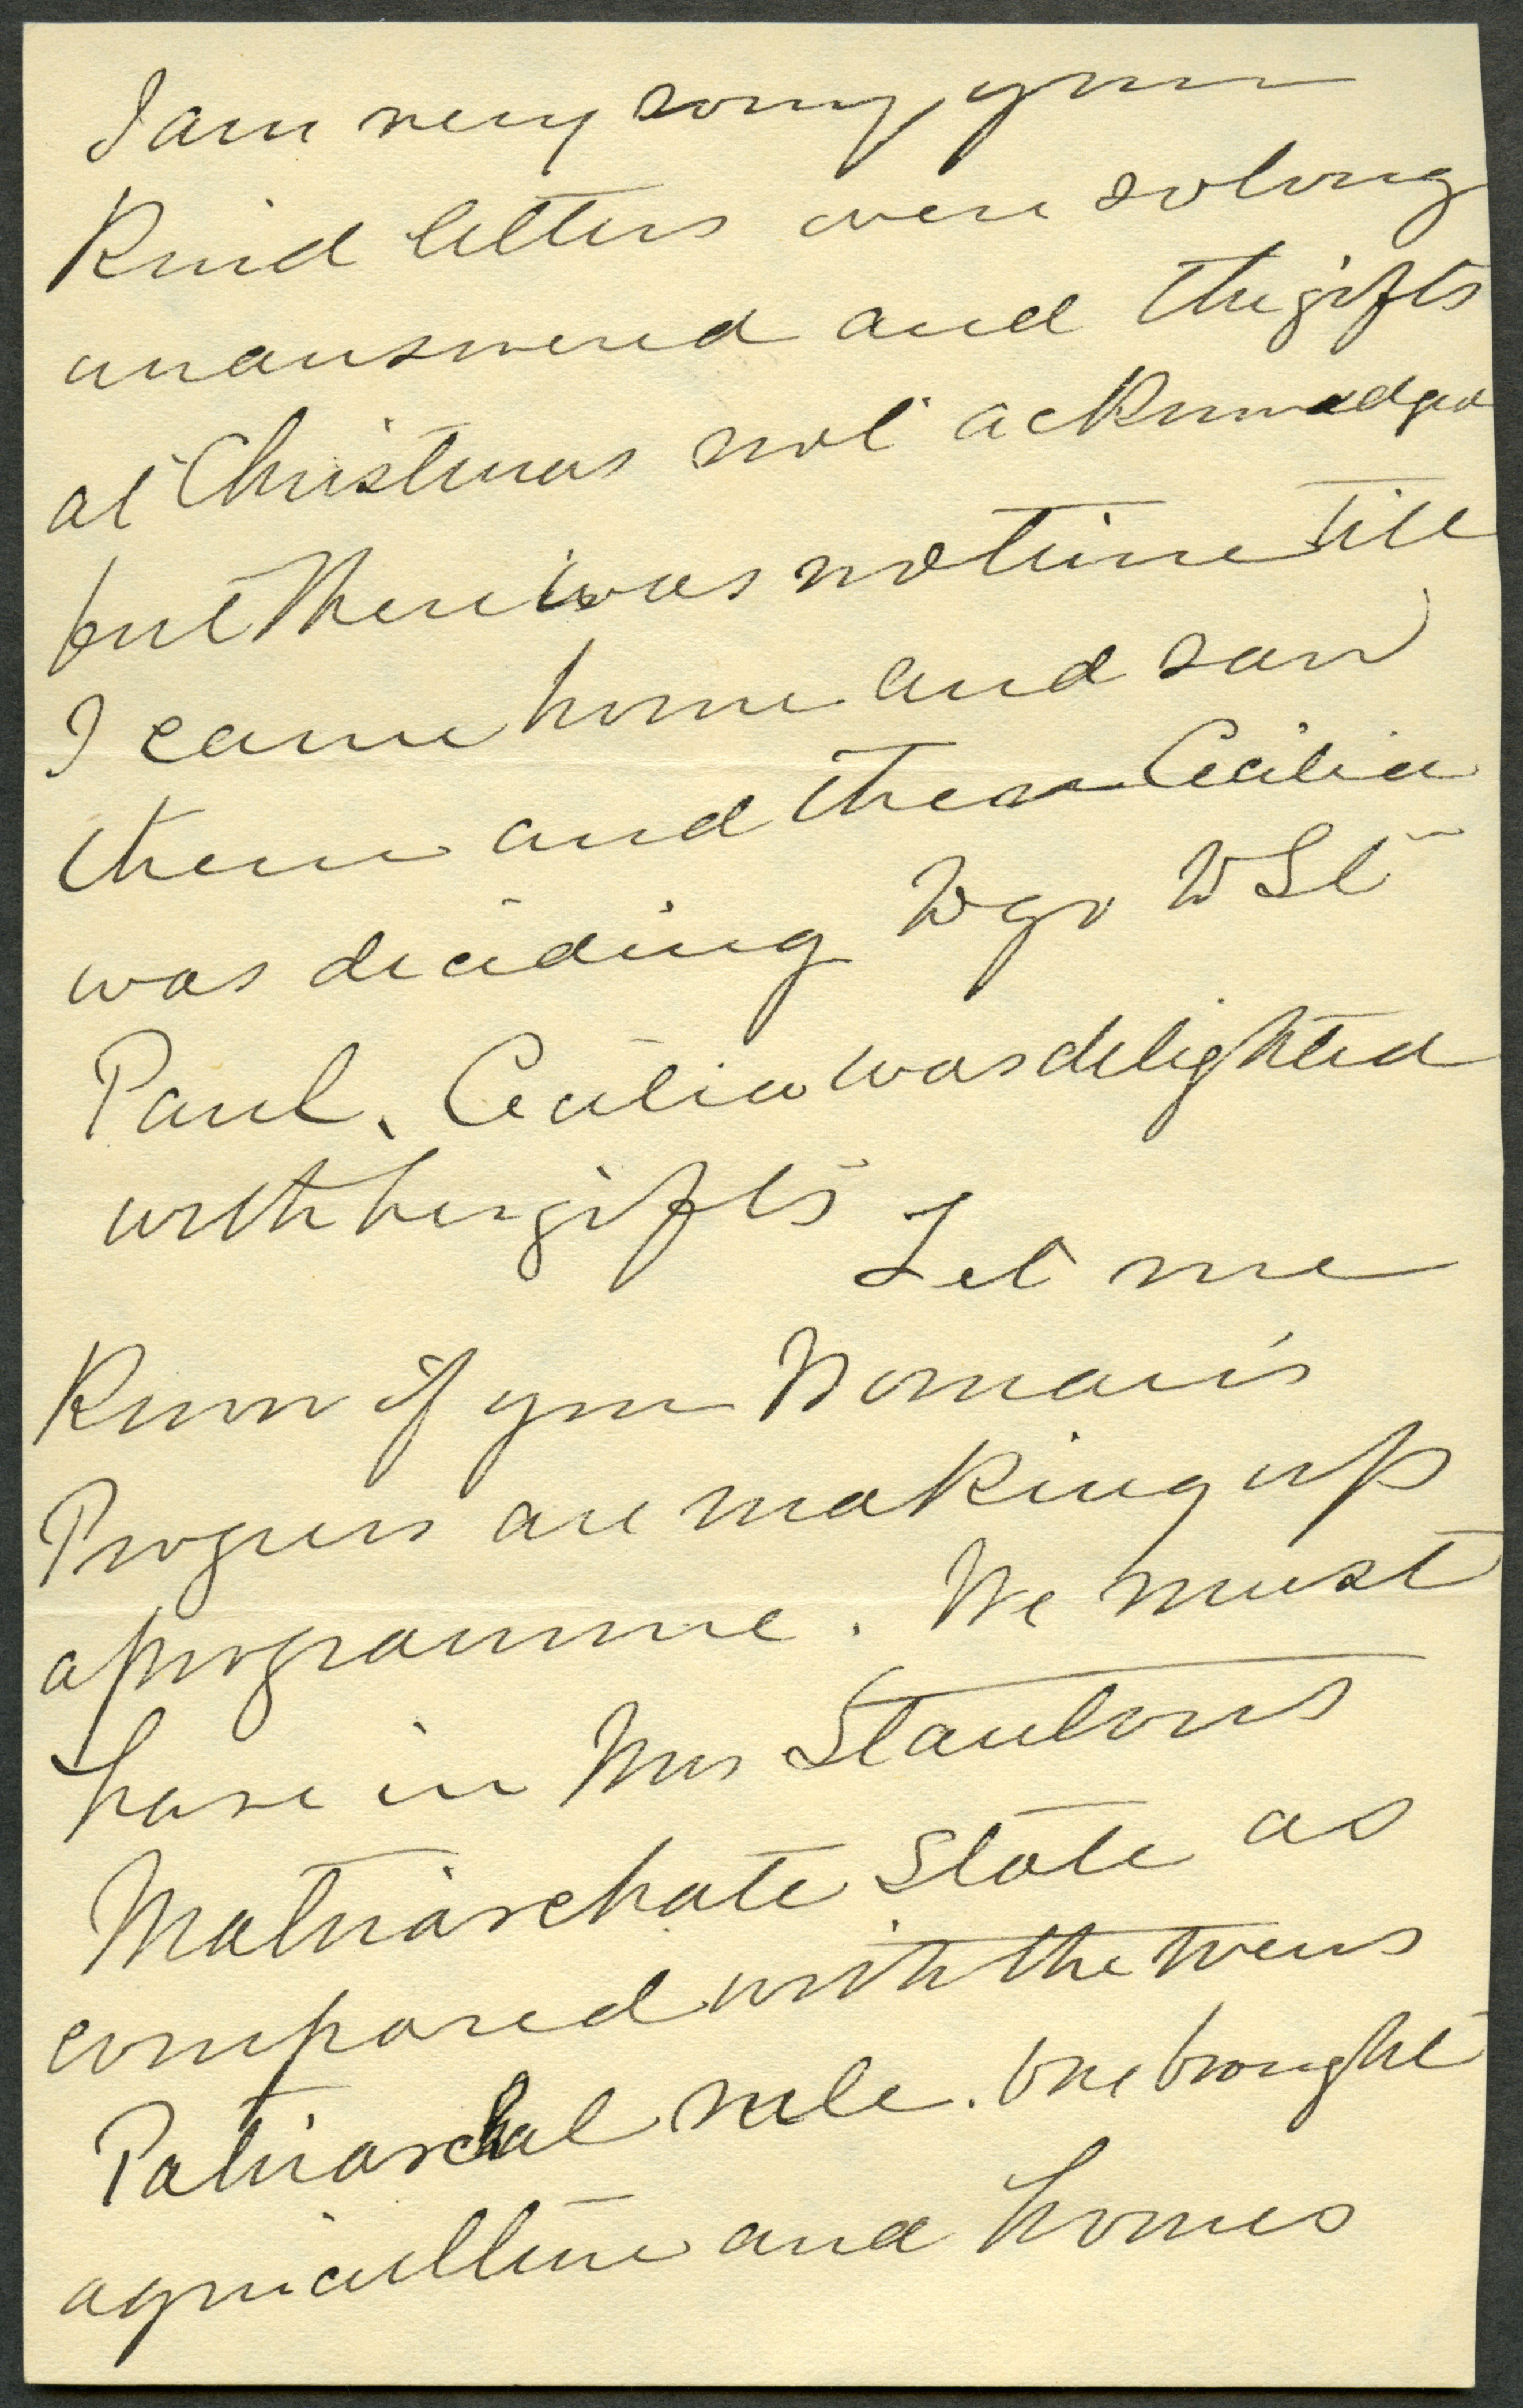 I am very sorry, your
kind letters were so long
unanswered and the gifts
at Christmas not acknowedged
but there was no time till
I came home and saw
them and then Cecilia
was deciding to go to St
Paul. Cecilia was delighted
with her gifts Let me
know if your Woman's
Progress are making up
a programme. We must
have in Mrs Stantons
Matriarchate State as
compared with the
Patriarchal rule. One brought
agriculture and homes